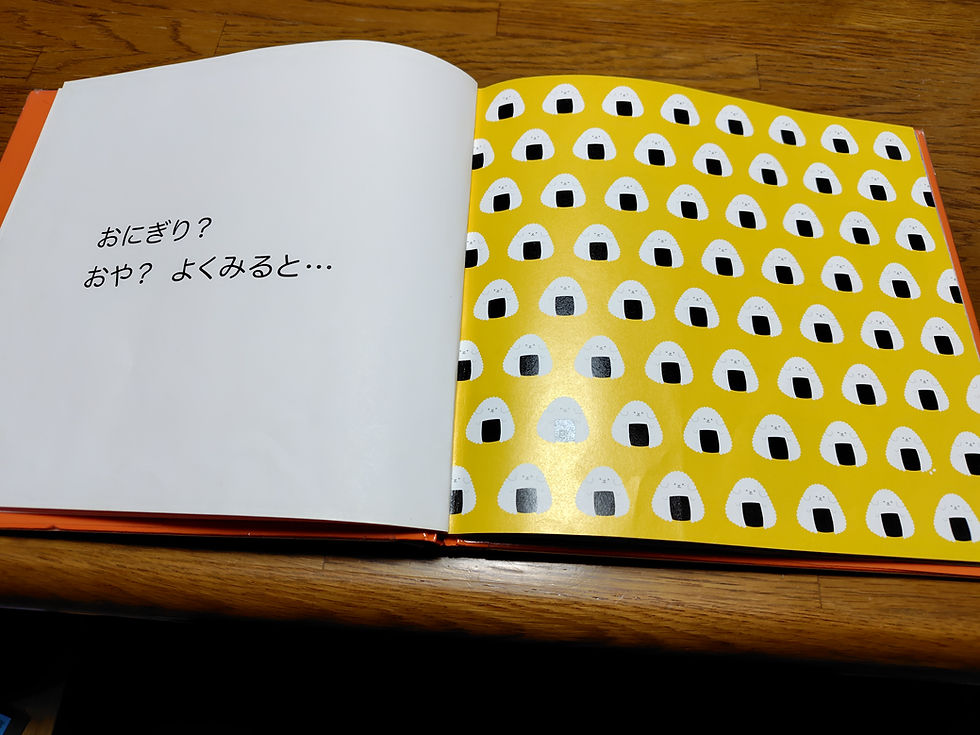 おにぎり？
おや？ よくみると…